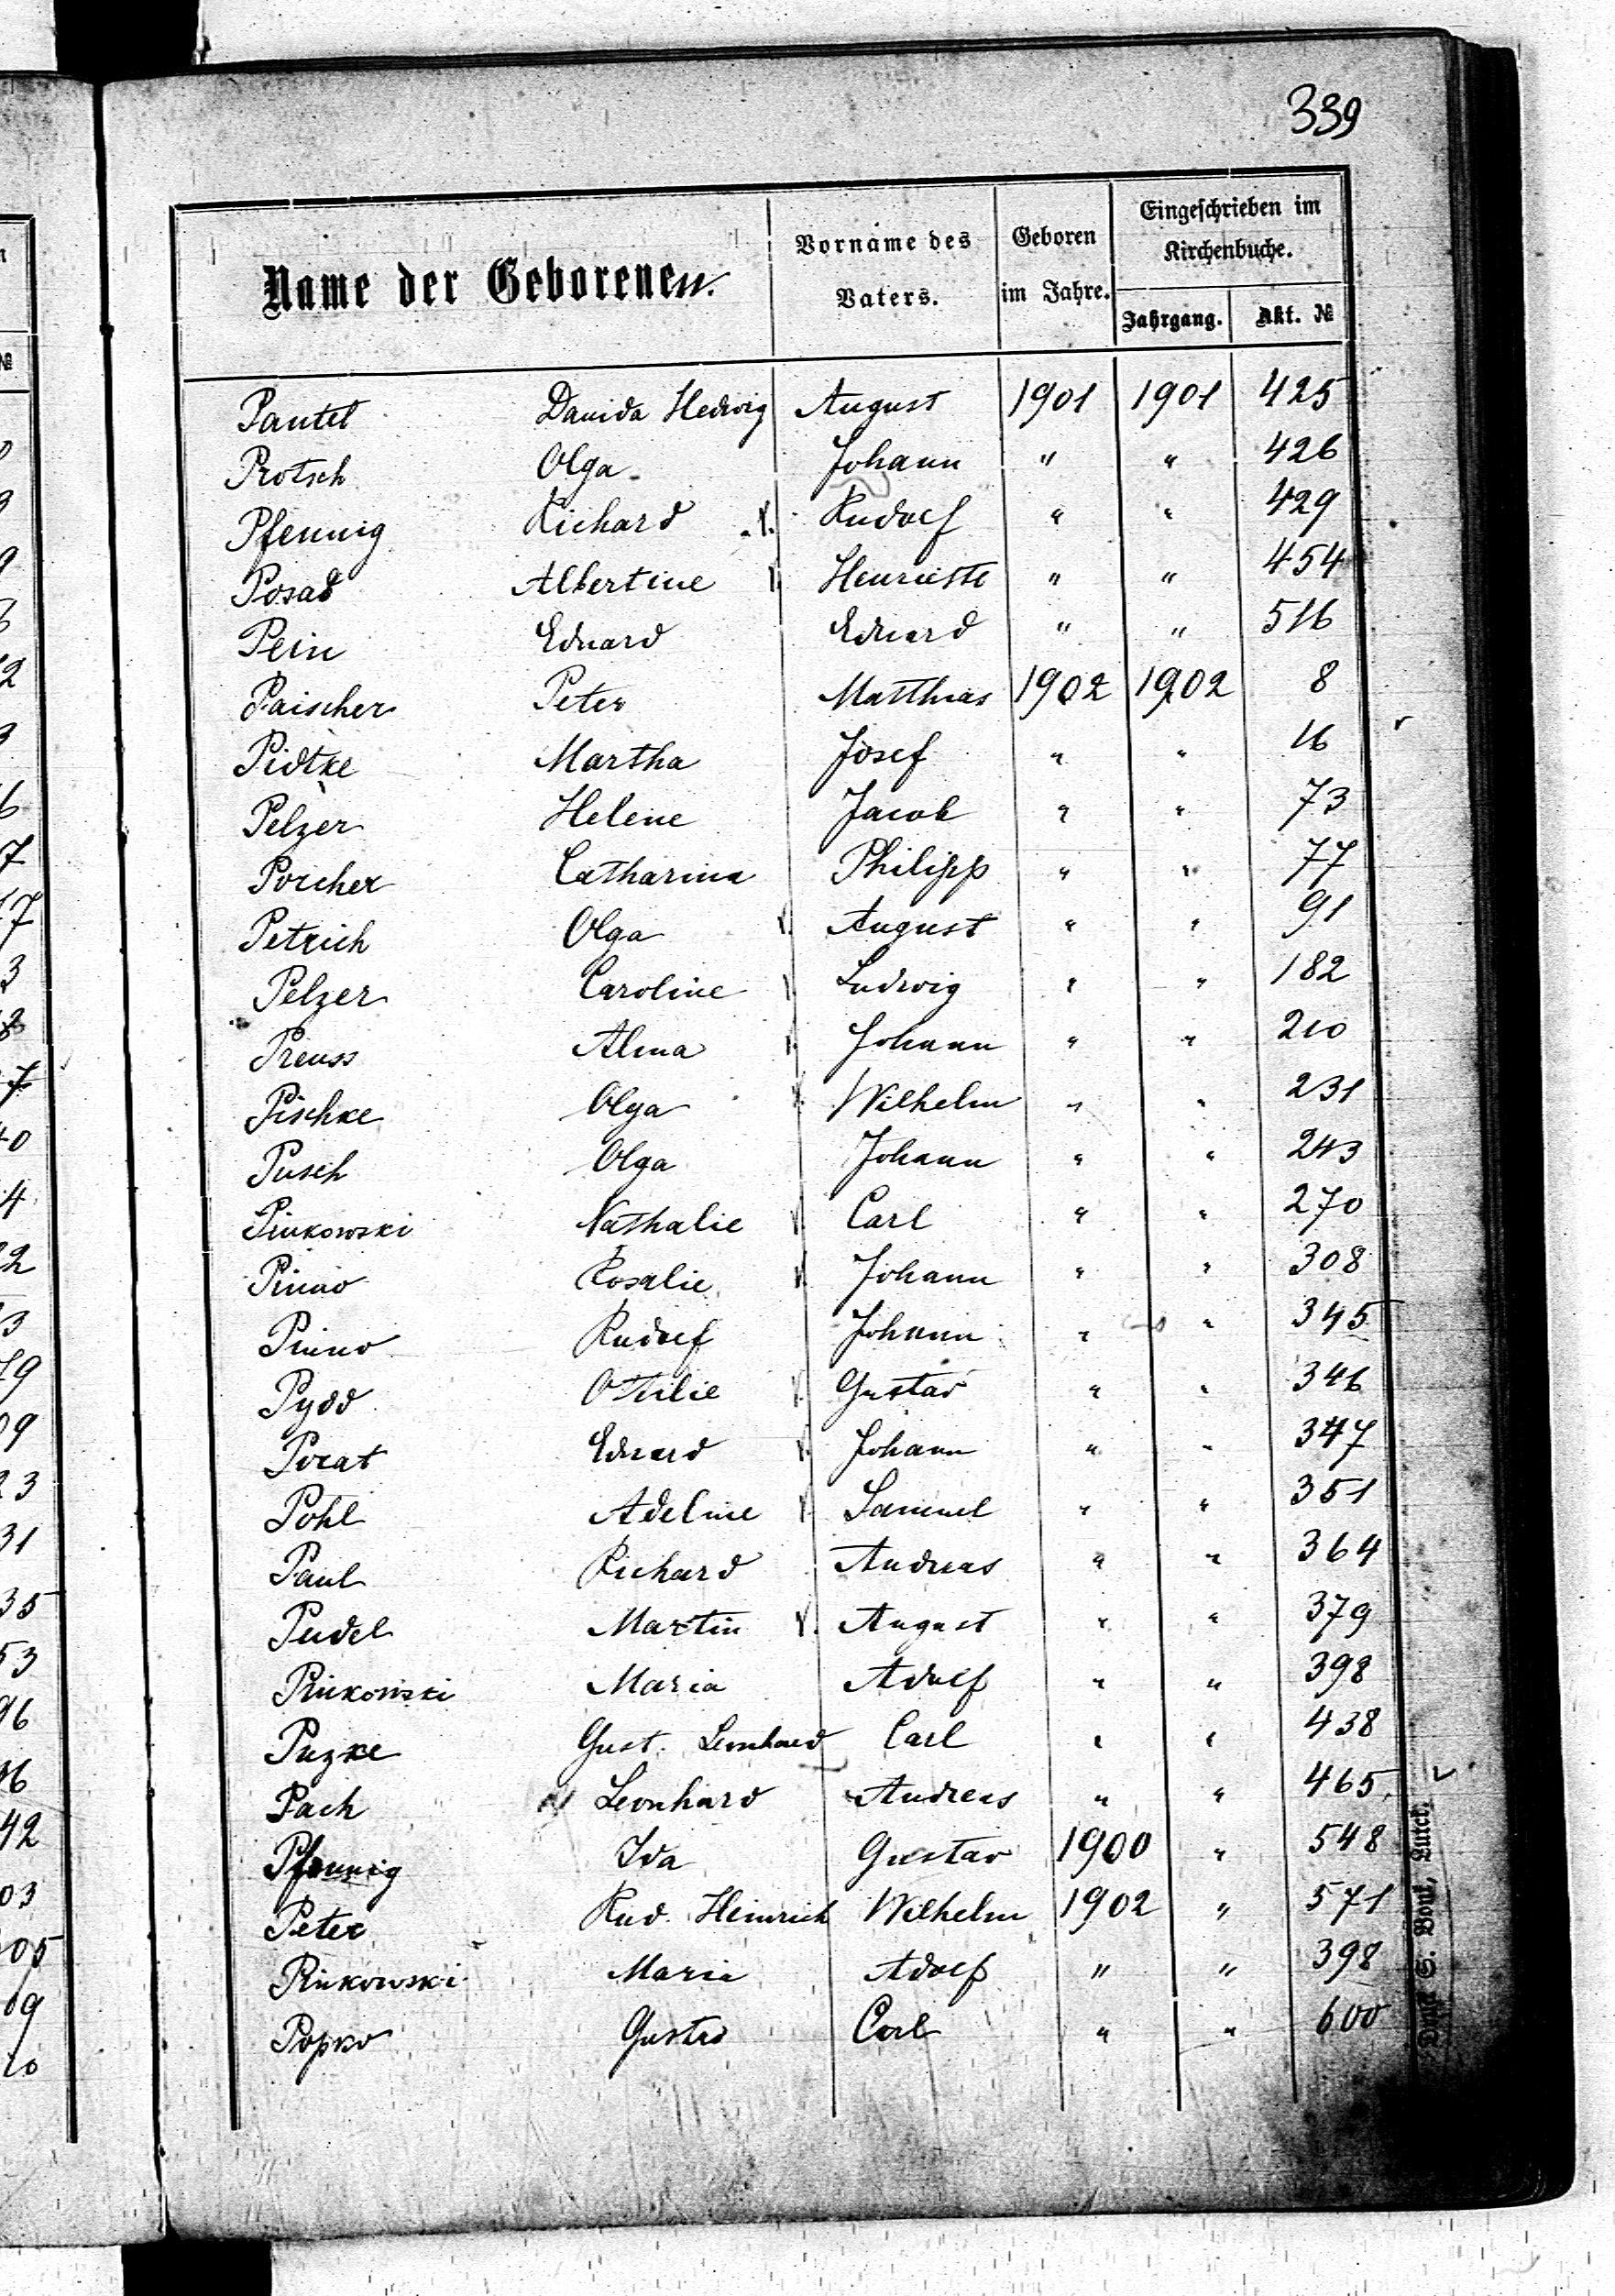 339
Name der Geborenen. Vorname des Vaters. Geboren im Jahre. Eingeschrieben im Kirchenbuche. Jahrgang. Akt. №
Pantel Davida Hedwig August 1901 1901 425
Protsch Olga Johann " " 426
Pfennig Richard Rudolf " " 429
Posad Albertine Henriette " " 454
Pein Eduard Eduard " " 516
Paischer Peter Matthias 1902 1902 8
Pidtke Martha Josef " " 16
Pelzer Helene Jacob " " 73
Porcher Catharina Philipp " " 77
Petrich Olga August " " 91
Pelzer Caroline Ludwig " " 182
Preuss Alma Johann " " 210
Pischke Olga Wilhelm " " 231
Pusch Olga Johann " " 243
Pinkowski Nathalie Carl " " 270
Pinno Rosalie Johann " " 308
Pinno Rudolf Johann " " 345
Pydd Ottilie Gustav " " 346
Porat Eduard Johann " " 347
Pohl Adeline Samuel " " 351
Paul Richard Andreas " " 364
Pudel Martin August " " 379
Pinkowski Maria Adolf " " 398
Puzke Gust. Leonhard Carl " " 438
Pach Leonhard Andreas " " 465
Pfennig Ida Gustav 1900 " 548
Peter Rud. Heinrich Wilhelm 1902 " 571
Pinkowski Maria Adolf " " 398
Popko Gustav Carl " " 600